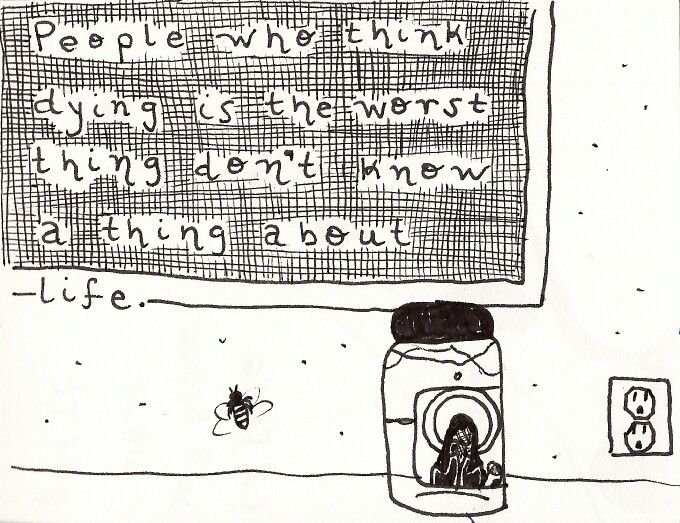 People who think
dying is the worst
thing don't know
a thing about
life.